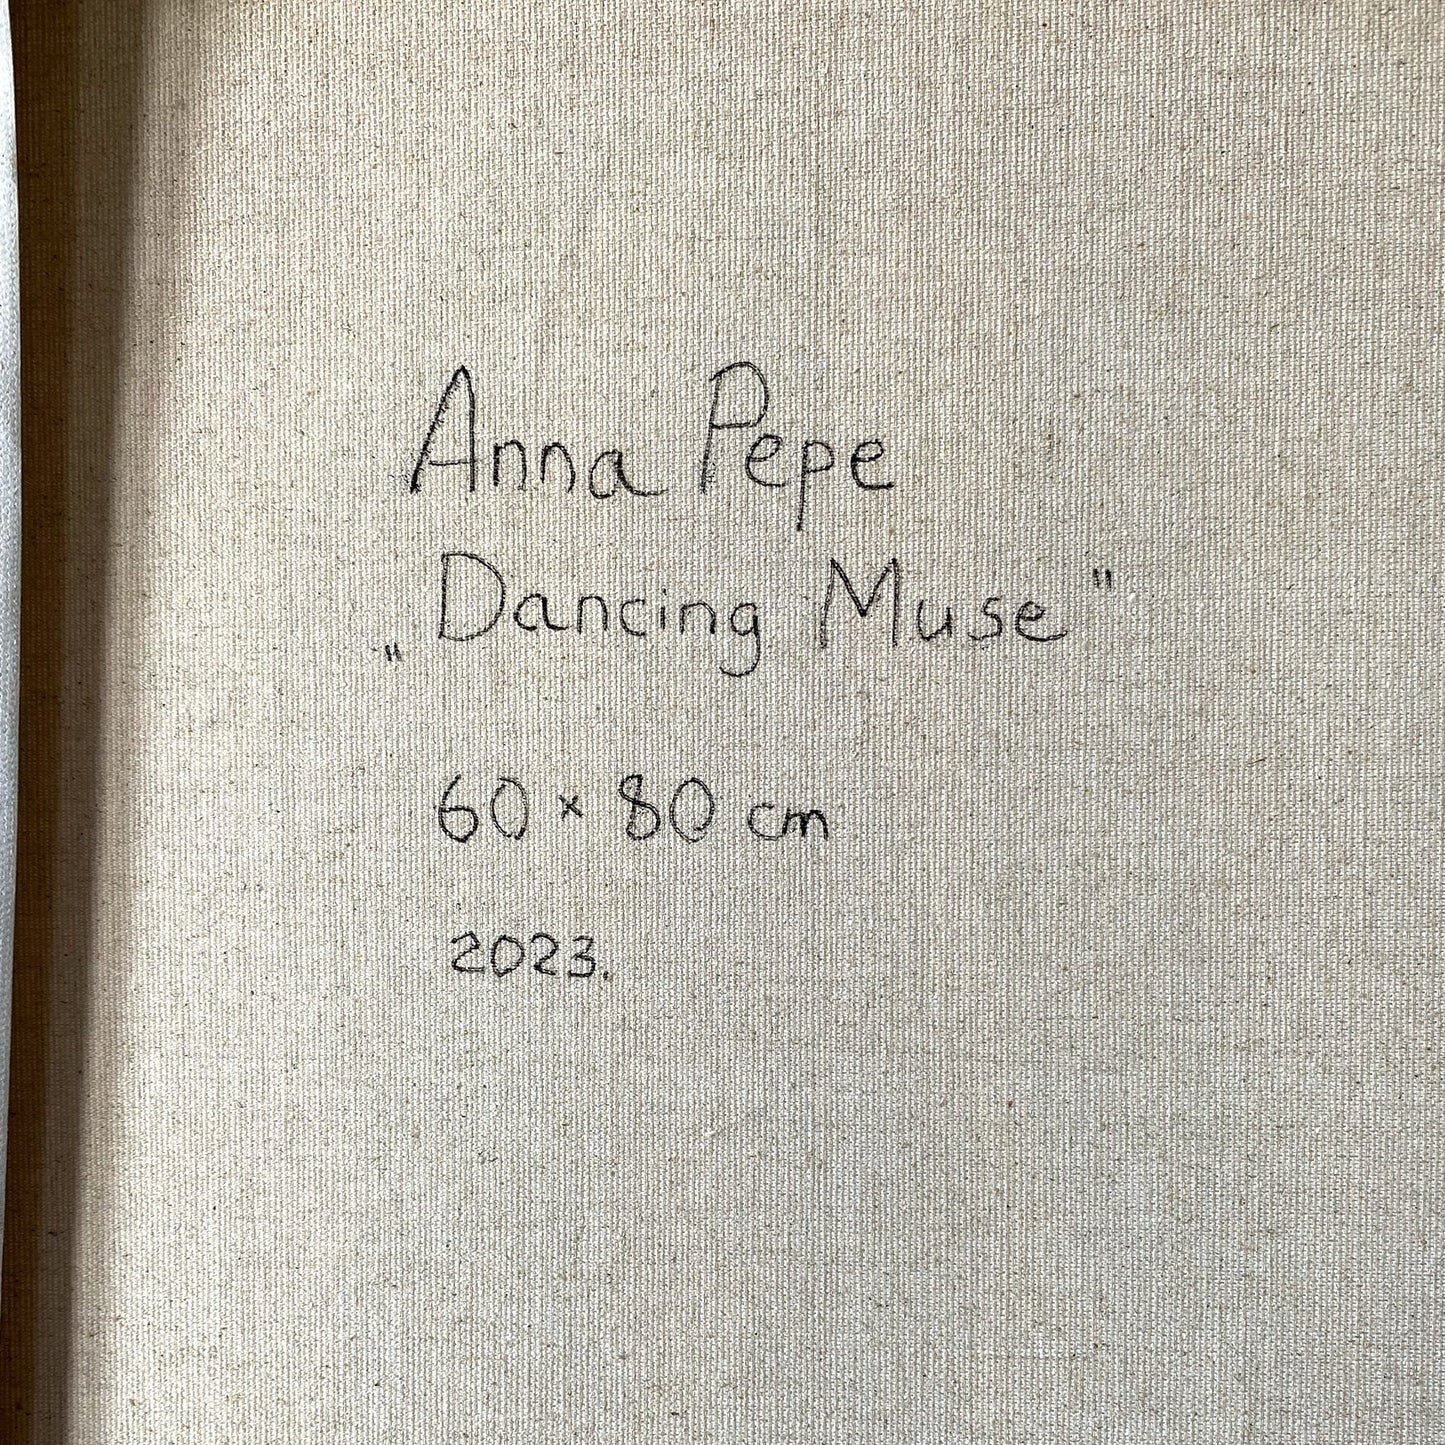 Anna Pepe
„Dancing Muse"
60 × 80 cm
2023.